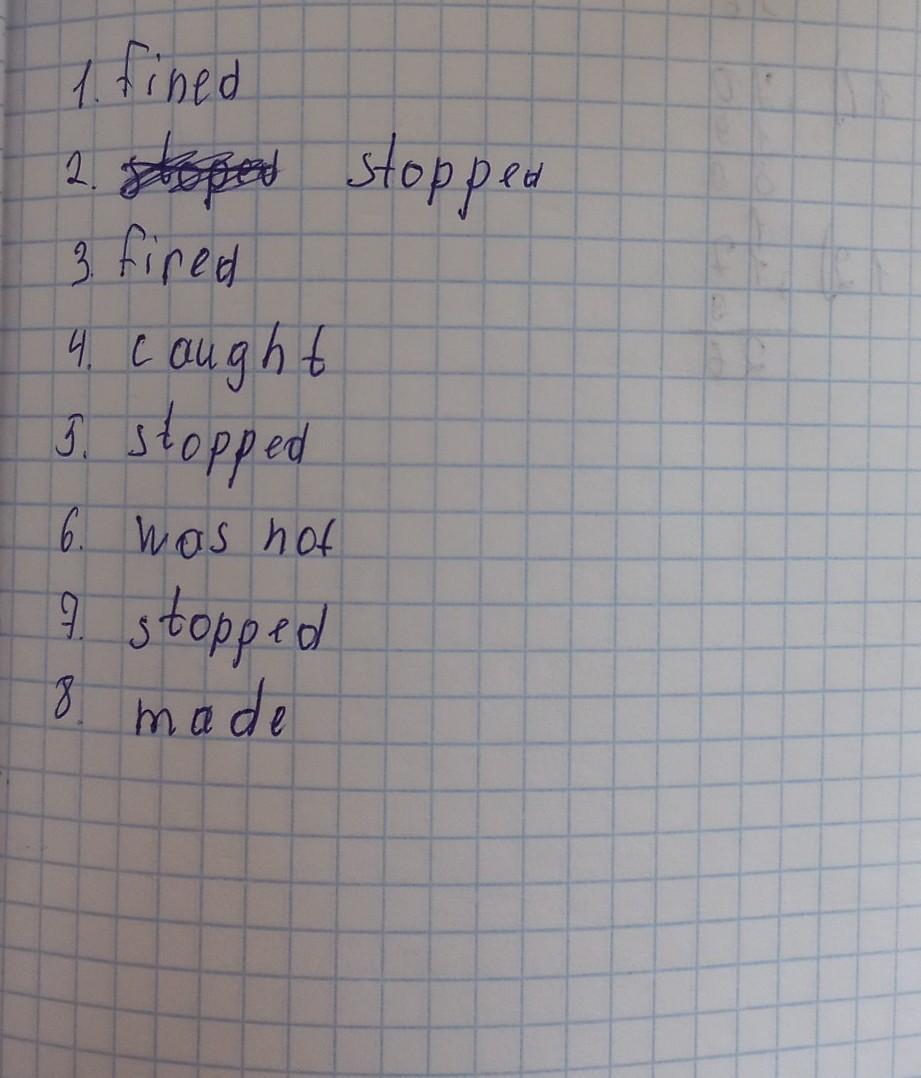 1. fined
2. stopped
3. fired
4. caught
5. stopped
6. was not
7. stopped
8. made